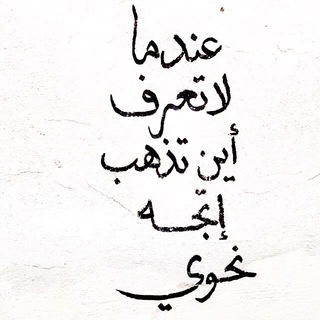 عندما
لا تعرف
أين تذهب
إتّجه
نحوي